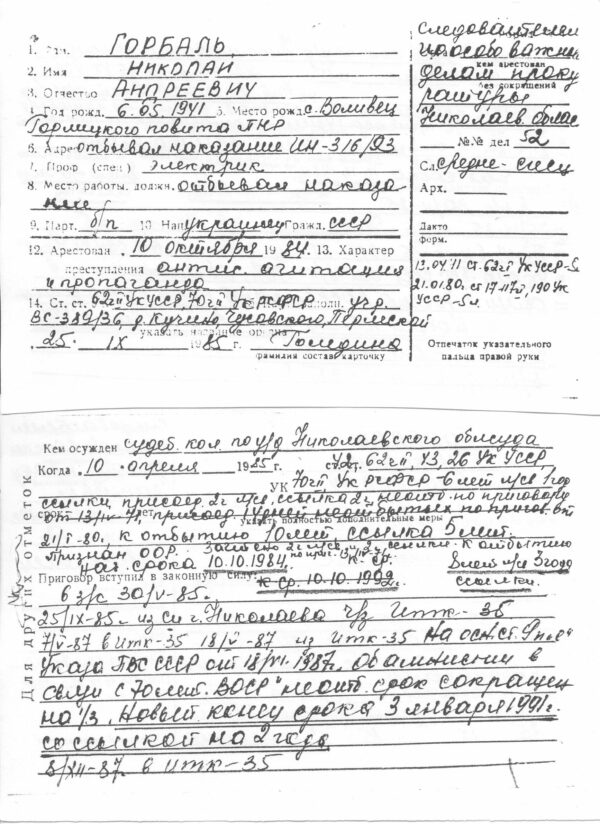 1. Фам. ГОРБАЛЬ
2. Имя НИКОЛАЙ
3. Отчество АНДРЕЕВИЧ
4. Год рожд. 6.05.1941 5. Место рожд. с. Воливец
Горлицкого повита ПНР
6. Адрес отбывал наказание ИН-316/93
7. Проф. (спец.) электрик
8. Место работы, должн. отбывал наказа
ние
9. Парт. б/п 10. Нац. украинец Гражд. СССР
12. Арестован 10 октября 1984. 13. Характер
преступления антис. агитация
и пропаганда
14. Ст. ст. 62чII УК УССР 70чII УК РСФСР учр.
ВС-389/36, д. Кучино Чусовского, Пермской
указать название органа
25. IX 1985 г. Голедина
фамилия состав. карточку
Следователем
по особо важным
кем арестован
делам проку
без сокращений
ратуры
Николаев облас
№№ дел 52
Сл. средне-спец
Арх.
Дакто
форм.
13.04.71 ст. 62чI УК УССР-5л
21.01.80. ст 17-117ч, 190 УК
УССР-5л
Отпечаток указательного
пальца правой руки
Кем осужден судеб. кол. по у/д Николаевского облсуда
Когда 10 апреля 1985 г. ст. 42 62чII, 43, 26 УК УССР,
УК 70чII, УК РСФСР
ссылки, присоед. 2г л/св, ссылка 2г, неотб. по приговору
срок
от 13/IV-71, присоед. неотбытых по пригов. от
указать полностью дополнительные меры
21/I-80, к отбытию 10 лет. ссылка 5 лет.
Признан ООР. ссылки. К отбытию
нач. срока 10.10.1984г. 8 лет л/св 3 года
Приговор вступил в законную силу: к. ср. 10.10.1992г. ссылки.
в з/с 30/V-85г.
25/IX-85г. из СИ г. Николаева ч/з ИТК-35
7/V-87 в ИТК-35 18/V-87 из ИТК-35 На осн. ст. 9 п. "в"
Указа ПВС СССР от 18/VI.1987г. Об амнистии в
связи с 70 лет. ВОСР" неотб. срок сокращен
на 1/3. Новый конец срока 3 января 1991г.
со ссылкой на 2 года
8/XII-87. в ИТК-35
Для других отметок